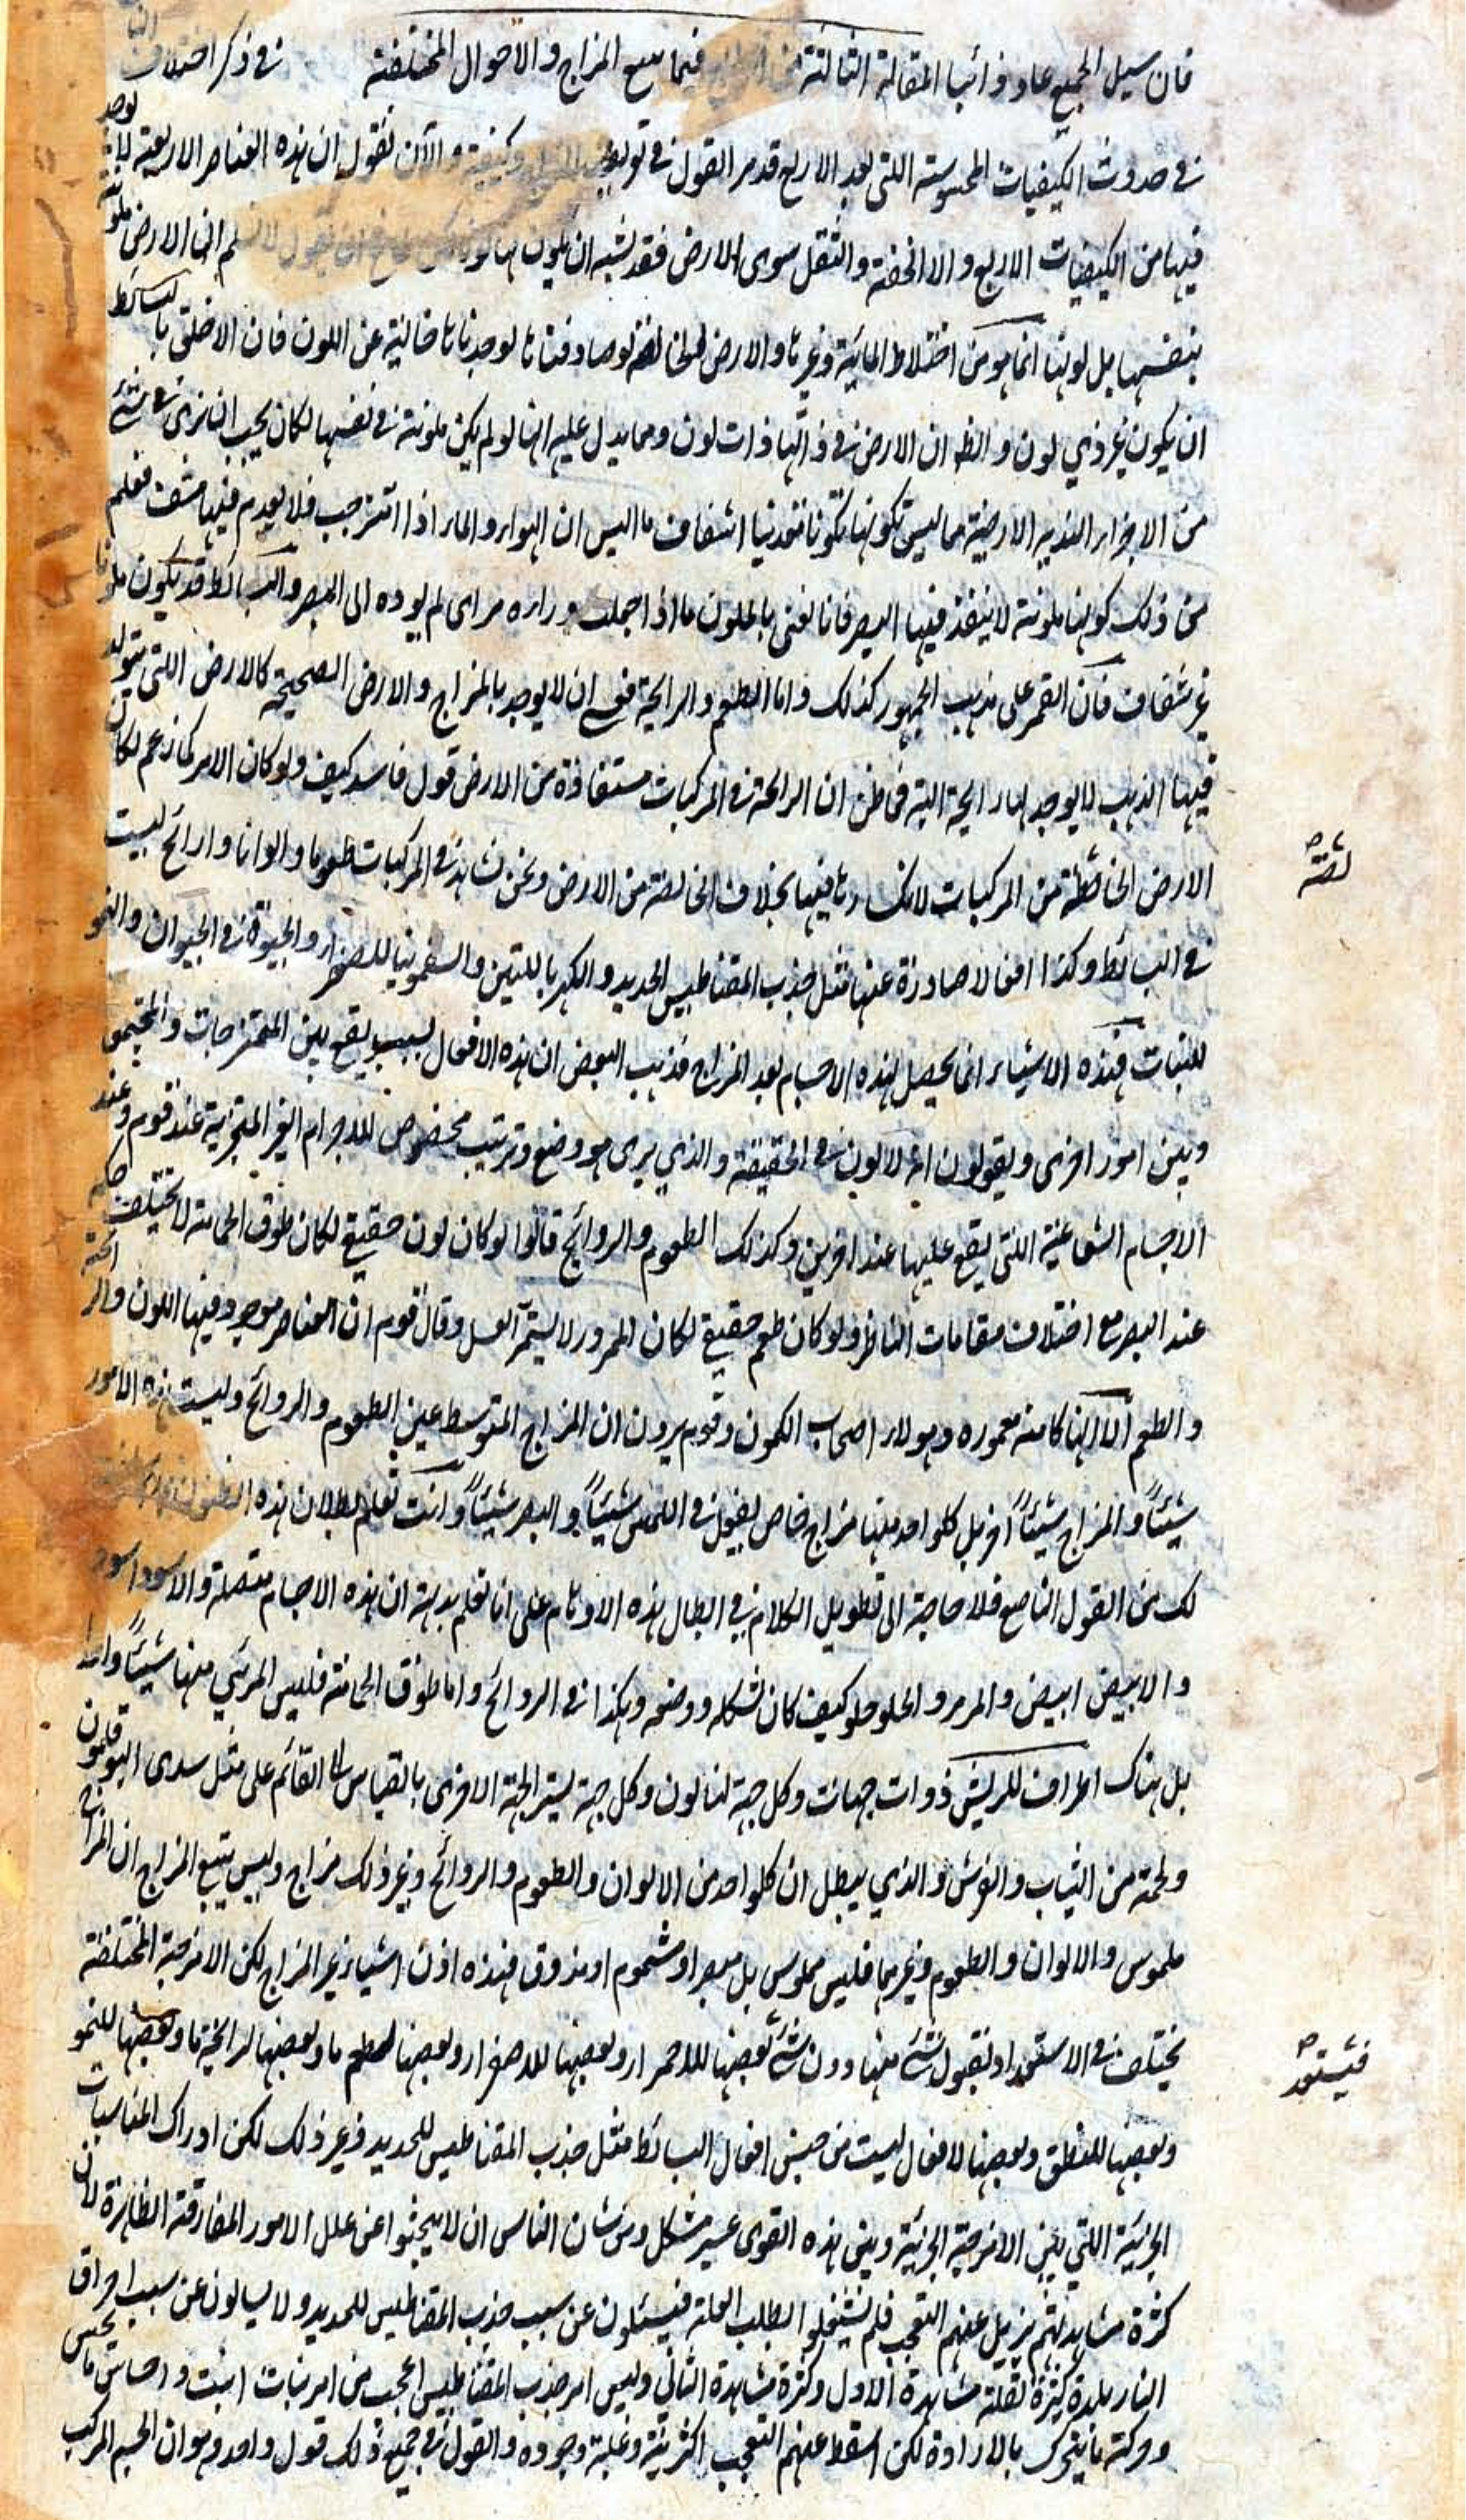 فان سبيل الجميع عاد ذائبا المقالة الثالثة فيما يتبع المزاج والاحوال المختلفة في ذكر اختلاف
في حدوث الكيفيات المحسوسة اللتى بعد الاربع قد مر القول في توابع وكيفيته والآن نقول ان هذه العناصر الاربعة يوجد
فيها من الكيفيات الاربع والا الخفة والثقل سوى الارض فقد يشبه ان يكون لها لون ان يقول لانسلم ان الارض ملونة
بنفسها بل لونها انما هو من اختلاط المائية وغيرها والارض لو صادفناها لوجدناها خالية عن اللون فان الاخلق بالبسائط
ان يكون غير ذي لون والظ ان الارض في ذاتها ذات لون ومما يدل عليه انها لو لم يكن ملونة في نفسها لكان يجب ان نرى في شئ
من الاجزاء الارضية مما ليس تكونها تكونا معدنيا اشفاف ما اليس ان الهواء والماء اذا امتزجت فلا يعدم فيها مشف فعلم
من ذلك كونها ملونة لا ينفذ فيها البصر فانا نعنى بالملون ما اذا جعلت وراءه مرائى لم يوده الى البصر والبسائط قد يكون ملونا
غير شفاف فان القمر على مذهب الجمهور كذلك واما الطعم والرايحة فعسى ان لا يوجد بالمزاج والارض الصحيحة كالارض اللتى يتولد
فيها الذهب لا يوجد لها رايحة البتة فمن ظن ان الرائحة في المركبات مستفادة من الارض قول فاسد كيف ولو كان الامر كما زعم لكان
الارض الخالصة من المركبات لانكسارها فيها بخلاف الخالصة من الارض ونحن نشاهد في المركبات طعوما والوانا وارائح ليست
لصة
في البسائط وكذا افعالا صادرة عنها مثل جذب المقناطيس الحديد والكهربا للتبن والسقمونيا للصفراء والحيوة في الحيوان والنمو
للنبات فهذه الاشياء انما يحصل لهذه الاجسام بعد المزاج فذهب البعض ان هذه الافعال بسبب يقع بين الممتزجات والمجتمع
وبين امور اخرى ويقولون انه لا لون في الحقيقة والذي يرى هو وضع وترتيب مخصوص للاجرام الغير المتجزية عند قوم وعند
الاجسام الشعاعية اللتى يقع عليها عند اخرين وكذلك الطعوم والروائح قالوا لو كان لون حقيقي لكان طوق الحمامة لا يختلف حكمه
عند البصر مع اختلاف مقامات الناظر ولو كان طعم حقيقي لكان الممرور لا يستمرء العسل وقال قوم ان العناصر موجود فيها اللون والرائحة
والطعم الا انها كامنة مغمورة وهولاء اصحاب الكمون وقوم يرون ان المزاج المتوسط عين الطعوم والروائح وليست هذه الامور
شيئاً والمزاج شيئاً اخر بل كل واحد منها مزاج خاص يفعل في اللمس شيئاً والبصر شيئاً وانت تعلم بطلان هذه الظنون
لك من القول الناصع فلا حاجة الى تطويل الكلام في ابطال هذه الاوهام على انا نعلم بديهة ان هذه الاجسام متصلة والاسود اسود
والابيض ابيض والمر مر والحلو حلو كيف كان شكله ووضعه وهكذا في الروائح واما طوق الحمامة فليس المرئي منها شيئاً واحدا
بل هناك اطراف للريش ذوات جهات وكل جهة لها لون وكل جهة يستر الجهة الاخرى بالقياس الى القائم على مثل سدى البوقلمون
ولحمته من الثياب والفرش والذي يبطل ان كل واحد من الالوان والطعوم والروائح وغير ذلك مزاج وليس يتبع المزاج ان المزاج
ملموس والالوان والطعوم وغيرهما فليس بملموس بل مبصر او مشموم او مذوق فهذه اذن اشياء غير المزاج لكن الامزجة المختلفة
يختلف في الاستعداد لقبول شئ منها دون شئ فبعضها للاحمرار وبعضها للاصفرار وبعضها لطعم ما وبعضها لرائحة ما وبعضها للنمو
فيستعد
وبعضها للنطق وبعضها لافعال ليست من جنس افعال البسائط مثل جذب المقناطيس للحديد وغير ذلك لكن ادراك المناسبات
الجزئية اللتي بين الامزجة الجزئية وبين هذه القوى عسير مشكل ومن شان الناس ان لا يبحثوا عن علل الامور المفارقة الظاهرة لان
كثرة مشاهدتهم يزيل عنهم التعجب فلم يشتغلوا بطلب العلة فيسئلون عن سبب جذب المقناطيس للحديد ولا يسالون عن سبب احراق
النار بلدة كثيرة لقلة مشاهدة الاول وكثرة مشاهدة الثاني وليس امر جذب المقناطيس اعجب من امر نبات انبت واحساس ما يحس
وحركة ما يتحرك بالارادة لكن اسقط عنهم التعجب اكثريته وغلبة وجوده والقول في جميع ذلك قول واحد وهو ان الجسم المركب